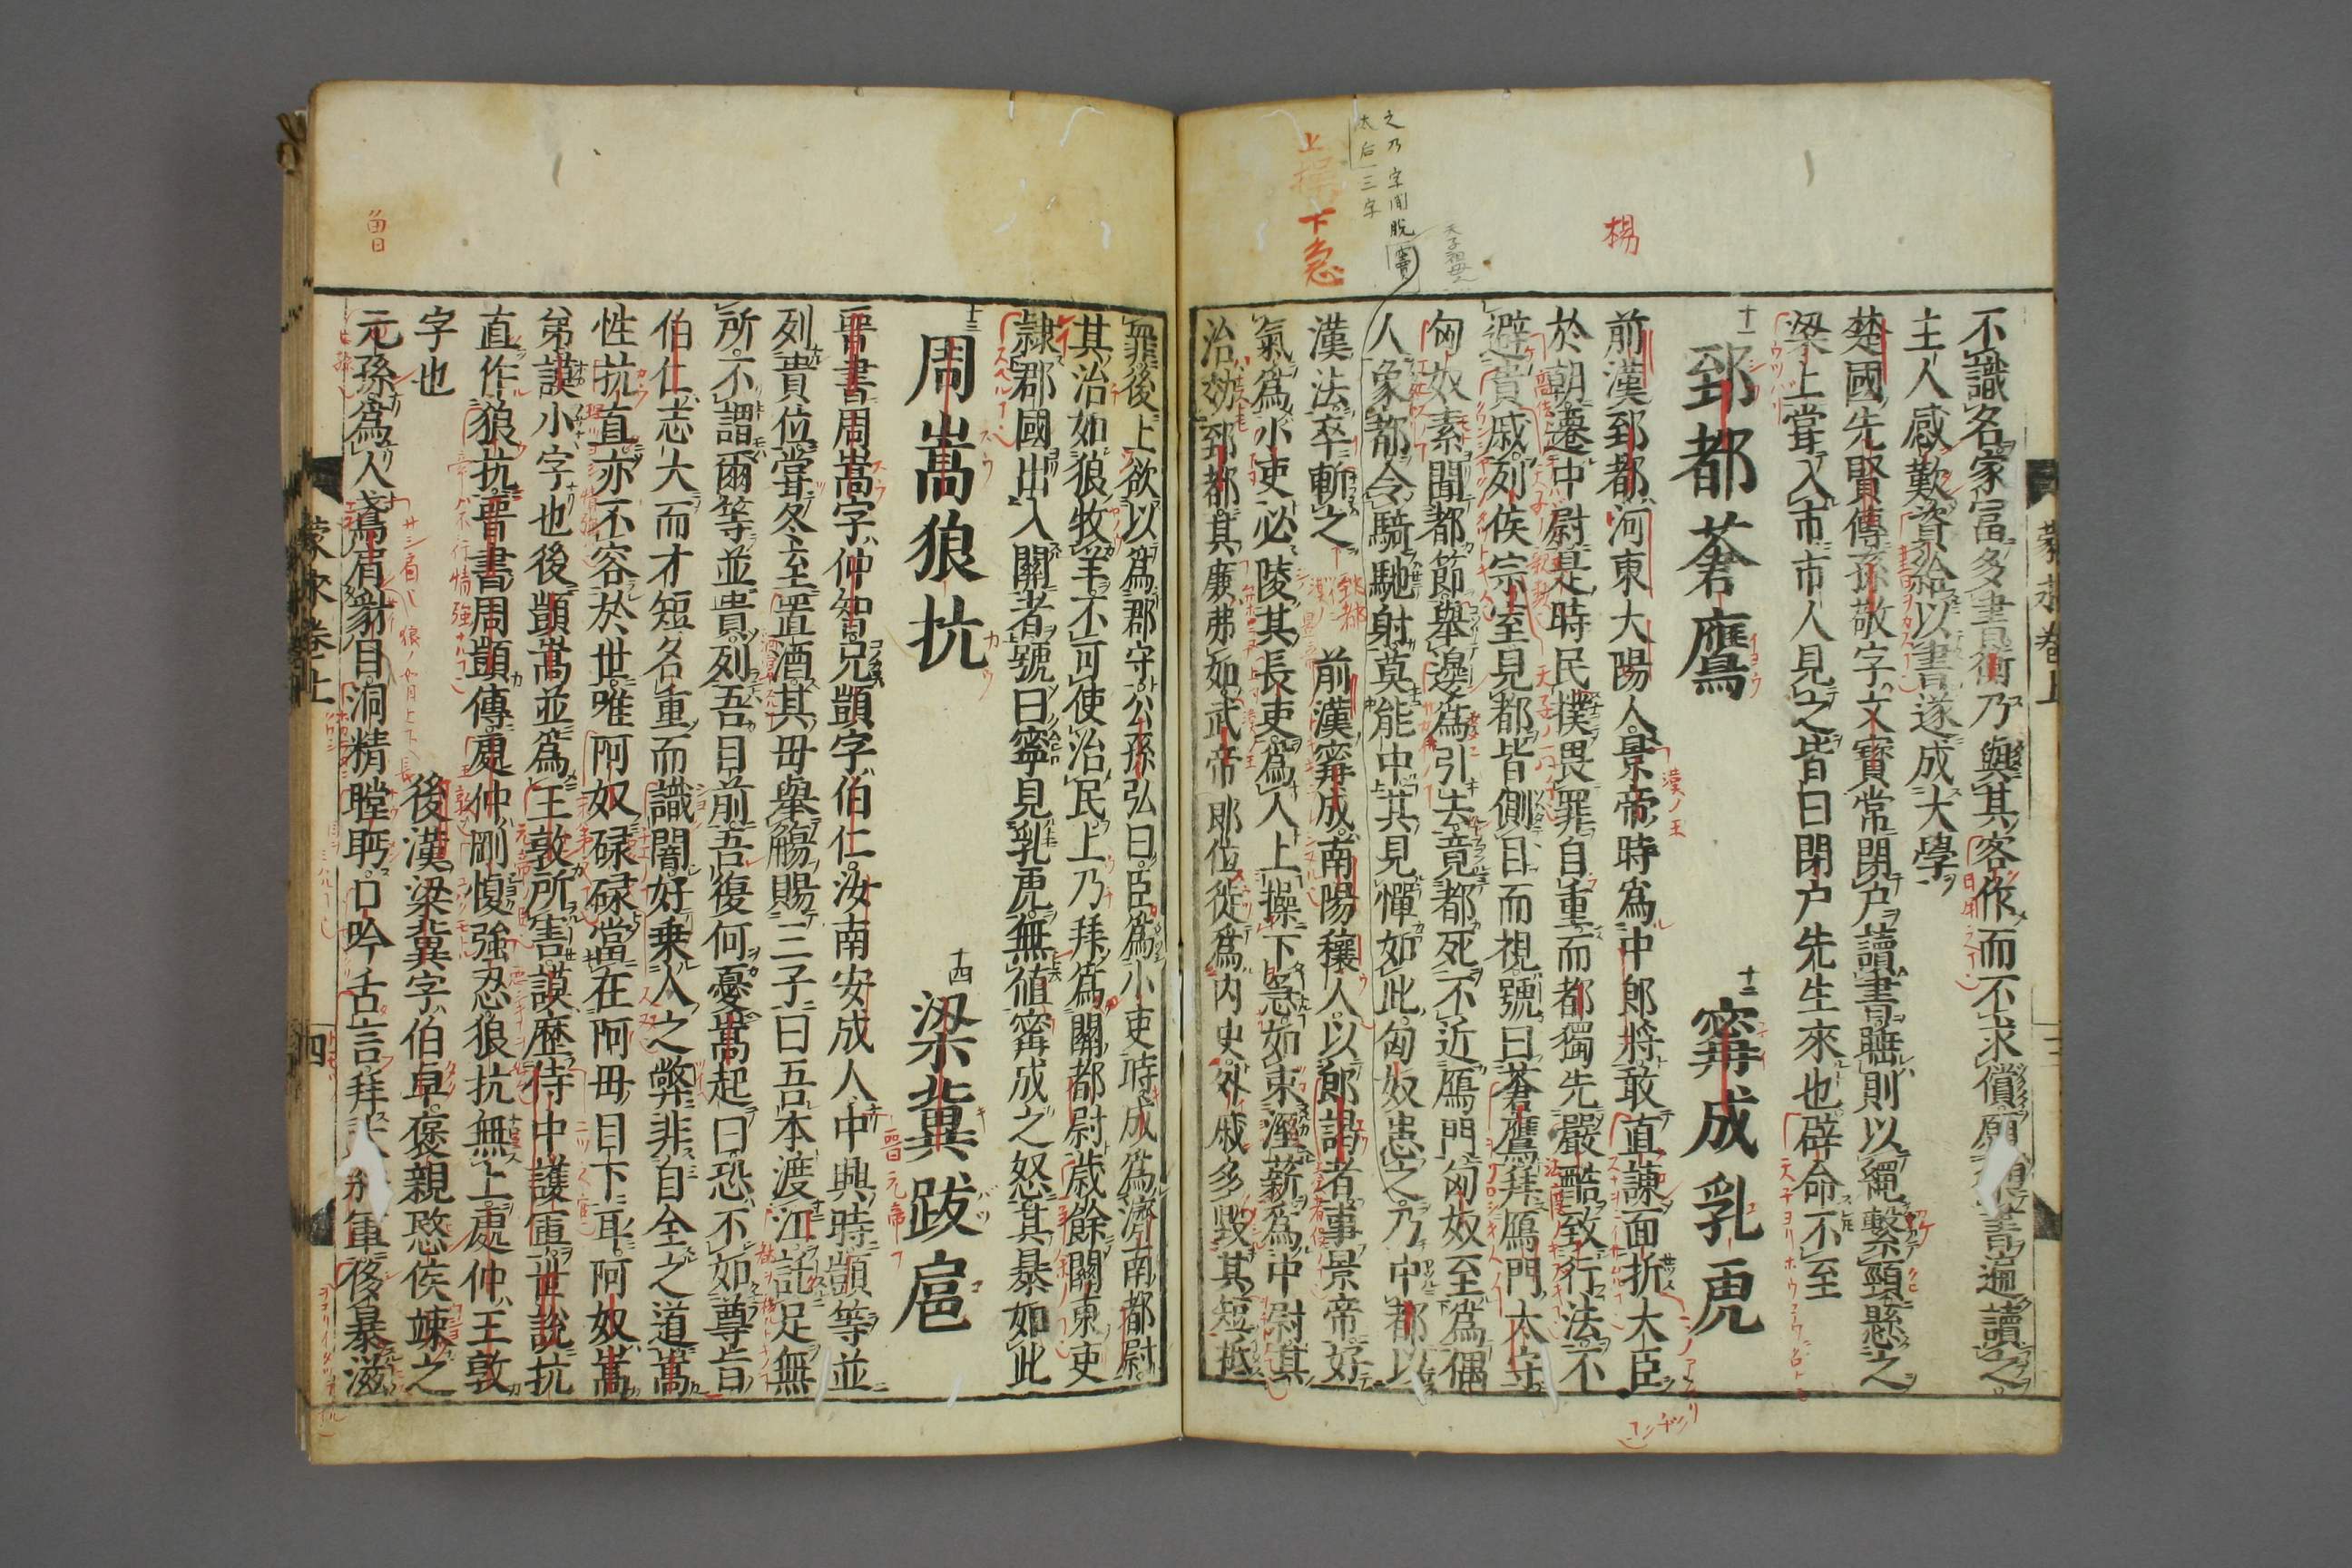 不識名家富多書衡乃與其客作而不求償願得書遍讀之
主人感歎資給以書遂成大學
楚國先賢傳孫敬字文寶常閉戸讀書睡則以繩繫頸懸之
梁上甞入市市人見之皆曰閉戸先生來也辟命不至
十一 郅都蒼鷹 十二 甯成乳虎
前漢郅都河東大陽人景帝時爲中郎將敢直諫面折大臣
於朝遷中尉是時民樸畏罪自重而都獨先嚴酷致行法不
避貴戚列侯宗室見都皆側目而視號曰蒼鷹拜鴈門太守
匈奴素聞都節舉邊爲引去竟都死不近鴈門匈奴至爲偶
人象都令騎馳射莫能中其見憚如此匈奴患之乃中都以
漢法卒斬之 前漢甯成南陽穰人以郎謁者事景帝好
氣爲小吏必陵其長吏爲人上操下急如束溼薪爲中尉其
治效郅都其廉弗如武帝即位徙爲內史外戚多毀其短抵
罪後上欲以爲郡守公孫弘曰臣爲小吏時成爲濟南都尉
其治如狼牧羊不可使治民上乃拜爲關都尉歲餘關東吏
隷郡國出入關者號曰寧見乳虎無値甯成之怒其暴如此
十三 周嵩狼抗 十四 梁冀跋扈
晉書周嵩字仲智兄顗字伯仁汝南安成人中興時顗等並
列貴位甞冬至置酒其母舉觴賜三子曰吾本渡江託足無
所不謂爾等並貴列吾目前吾復何憂嵩起曰恐不如尊旨
伯仁志大而才短名重而識闇好乗人之弊非自全之道嵩
性抗直亦不容於世唯阿奴碌碌當在阿母目下耳阿奴嵩
弟謨小字也後顗嵩並爲王敦所害謨歷侍中護軍世說抗
直作狼抗晉書周顗傳處仲剛愎強忍狼抗無上處仲王敦
字也 後漢梁冀字伯卓襃親愍侯竦之
元孫爲人鳶肩豺目洞精矘眄口吟舌言拜大將軍侈暴滋
蒙求卷上
四
蒙求卷上
楊
上操下急
之乃字間脫竇
太后三字